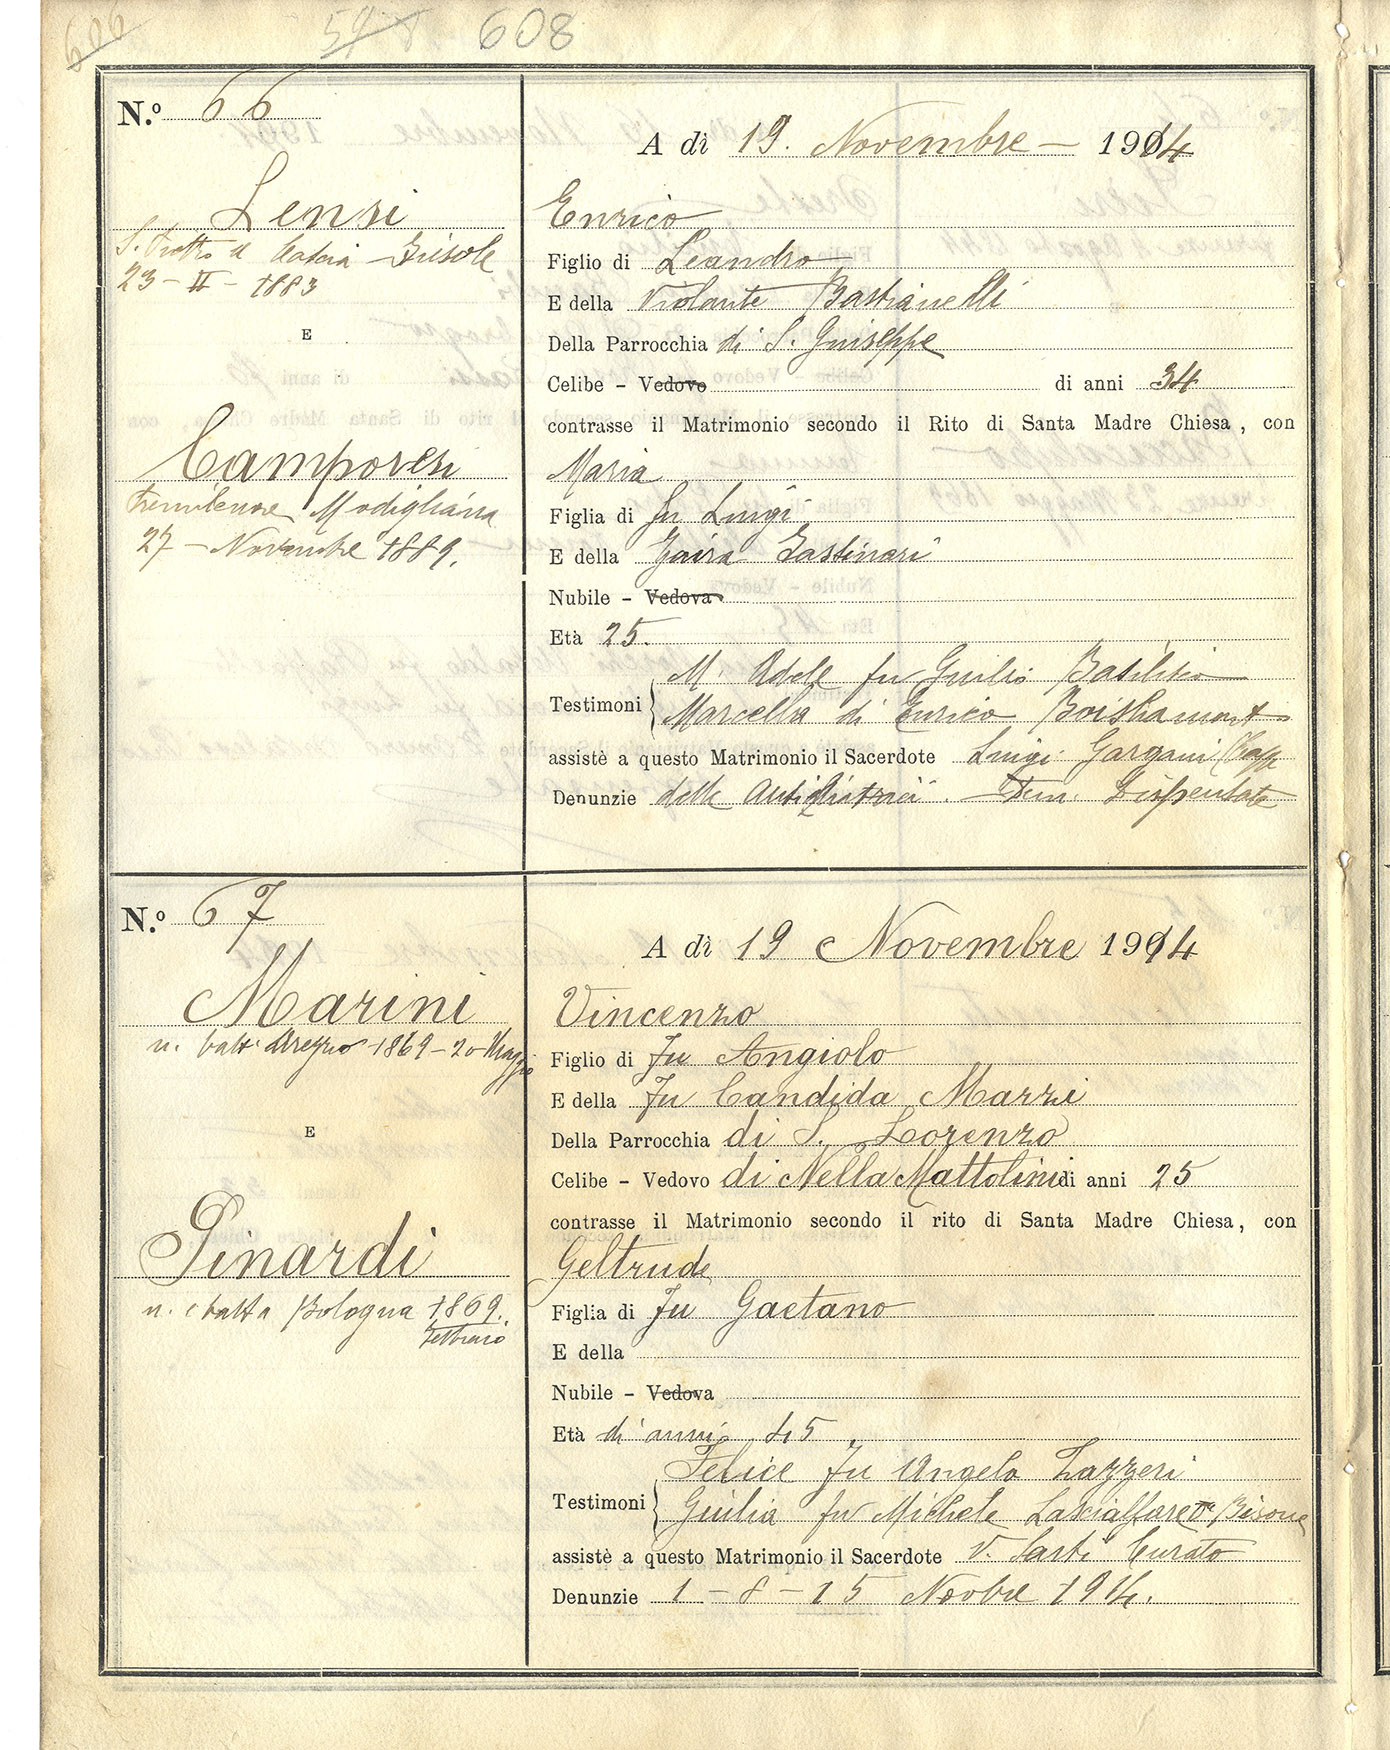 606
598 608
N.º 66
A dì 19. Novembre — 1914
Lensi
Enrico
Fiesole
23 - II - 1883
Figlio di Leandro
E della Violante Bastianelli
E
Della Parrocchia di S. Giuseppe
Celibe - Vedovo di anni 34
contrasse il Matrimonio secondo il Rito di Santa Madre Chiesa, con
Camporesi
Maria
Modigliana
27 - Novembre 1889.
Figlia di fu Luigi
E della Zaira
Nubile - Vedova
Età 25.
M. Adele fu Giulio Basilisco
Testimoni
Marcella di Enrico
assistè a questo Matrimonio il Sacerdote Luigi Gargani
Denunzie delle Dispensate
N.º 67
A dì 19 Novembre 1914
Marini
Vincenzo
n. batt. 1869 - 20 Maggio
Figlio di fu Angiolo
E della fu Candida Marzi
E
Della Parrocchia di S. Lorenzo
Celibe - Vedovo di Nella Mattolini di anni 25
contrasse il Matrimonio secondo il rito di Santa Madre Chiesa, con
Pinardi
Geltrude
n. e batta Bologna 1869.
Febbraio
Figlia di fu Gaetano
E della
Nubile - Vedova
Età di anni 45
Felice fu Angelo Lazzeri
Testimoni
Giulia fu Michele Lascialfare
assistè a questo Matrimonio il Sacerdote V. Sarti Curato
Denunzie 1 - 8 - 15 Novbre 1914.